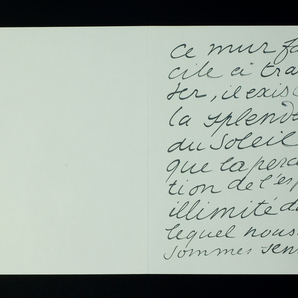 ce mur fa
cile à tra
ser, il exis
la splende
du soleil
que la perce
tion de l'es
illimité da
lequel nous
sommes sen